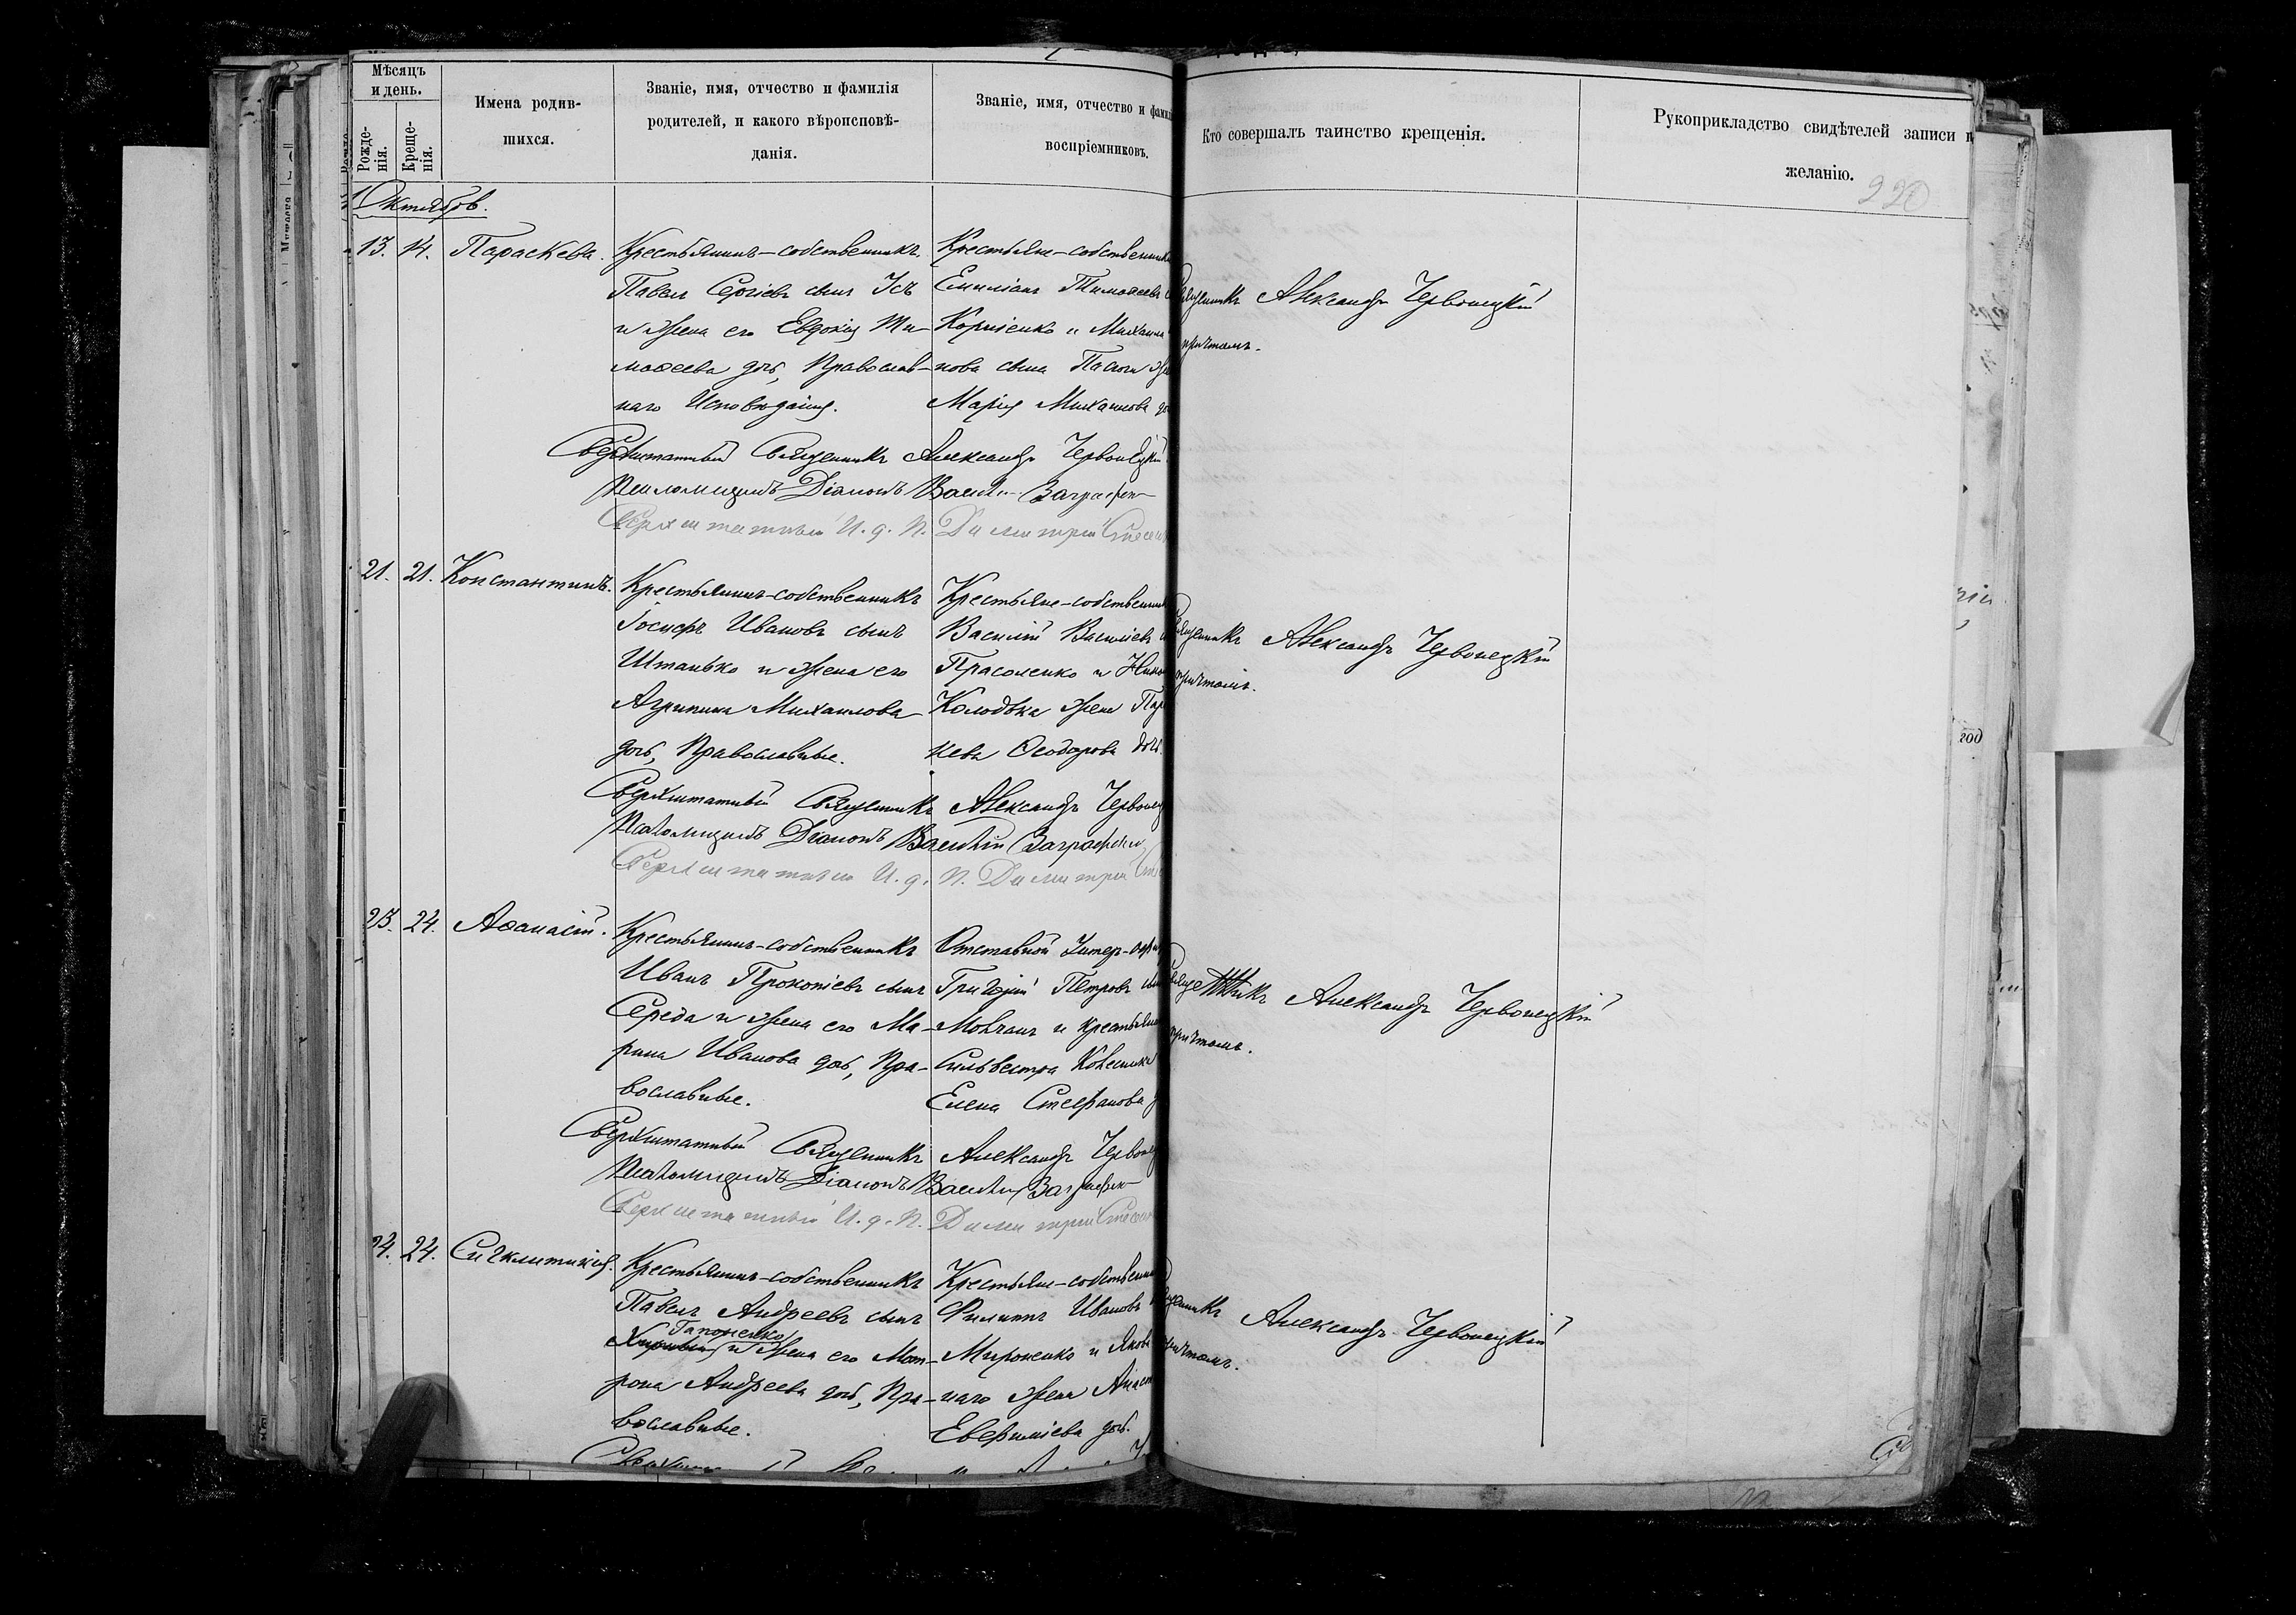 Мѣсяцъ и день.
Рожде-нія.
Креще-нія.
Имена родив-шихся.
Званіе, имя, отчество и фамилія родителей, и какого вѣроисповѣ-данія.
Званіе, имя, отчество и
воспріемниковъ.
Кто совершалъ таинство крещенія.
Рукоприкладство свидѣтелей записи
желанію.
220
Октябрь.
13. 14. Параскева.
Крестьянинъ-собственникъ
Павелъ Сергіевъ сынъ Усъ
и жена его Евдокія Ти-
моѳеева дочь, Православ-
наго Исповѣданія.
Крестьяне-собственники
Емиліанъ Тимоѳеевъ
Корніенко и Михаила
нова сына
Марія Михаилова
Священникъ Александръ Червонецкій
причтомъ.
Сверхштатный Священникъ Александръ Червонецкій
Псаломщикъ Діаконъ Василій
Сверхштатный И. д. П. Димитрій
21. 21. Константинъ.
Крестьянинъ-собственникъ
Іосифъ Ивановъ сынъ
Штанько и жена его
Агрипина Михаилова
дочь, Православные.
Крестьяне-собственники
Василій Василіевъ
Прасоленко и
Колодка жена Пар
кева Ѳеодорова дочь.
Священникъ Александръ Червонецкій
причтомъ.
Сверхштатный Священникъ Александръ
Псаломщикъ Діаконъ Василій
Сверхштатный И. д. П. Димитрій
23. 24. Аѳанасій.
Крестьянинъ-собственникъ
Иванъ Прокопіевъ сынъ
Середа и жена его Ма-
рина Иванова дочь, Пра-
вославные.
Отставной Унтер-офиц
Григорій Петровъ сынъ
Мовчанъ и крестьянина
Сильвестра
Елена Стефанова
Священникъ Александръ Червонецкій
причтомъ.
Сверхштатный Священникъ Александръ
Псаломщикъ Діаконъ Василій
Сверхштатный И. д. П. Димитрій
24. 24. Сигклитикія.
Крестьянинъ-собственникъ
Павелъ Андреевъ сынъ
Гапоненко
и жена его Мат-
рона Андреева дочь, Пра-
вославные.
Крестьяне-собственники
Филиппъ Ивановъ
Мироненко и Якова
наго жена
Евфиміева дочь.
Священникъ Александръ Червонецкій
причтомъ.
год